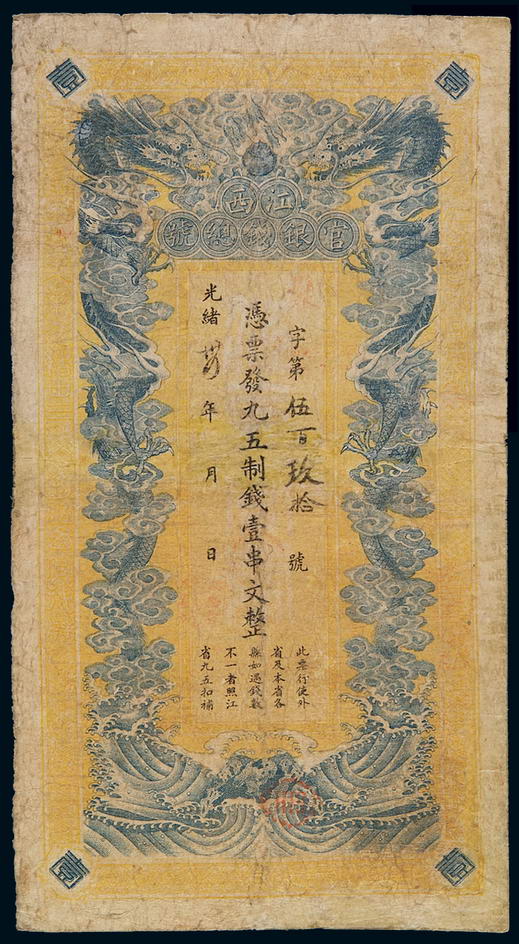 壹
壹
江西
官銀錢總號
字第伍百玖拾號
憑票發九五制錢壹串文整
光緒 年 月 日
此票行使外
省及本省各
縣如遇錢數
不一者照江
省九五扣補
壹
壹